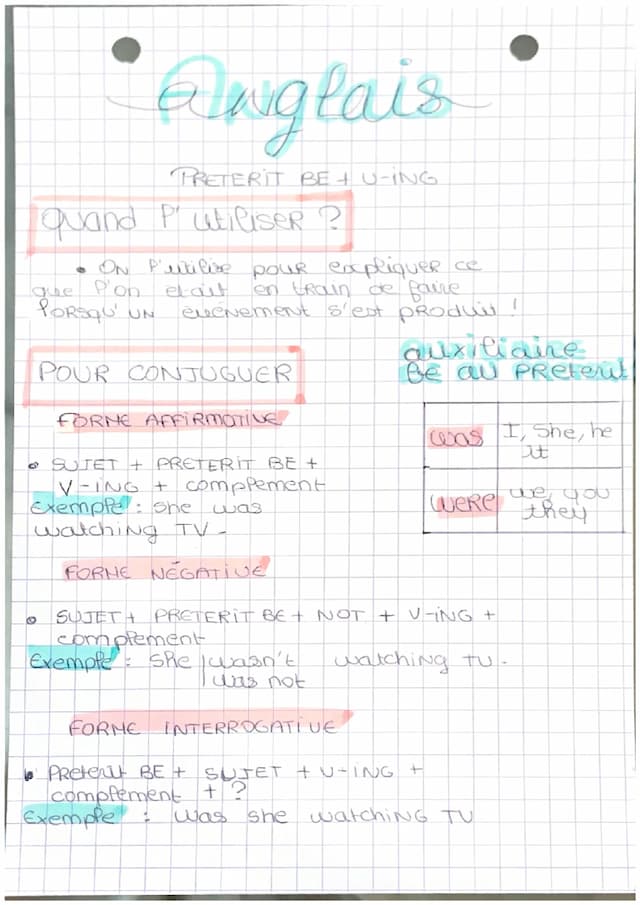 Anglais
PRETERIT BE + V-ING
Quand l'utiliser ?
• On l'utilise pour expliquer ce
que l'on etait en train de faire
lorsqu'un évènement s'est produit !
POUR CONJUGUER
FORME AFFIRMATIVE
• SUJET + PRETERIT BE +
V-ING + complement
Exemple : she was
watching TV.
auxiliaire
BE au preterit
was I, She, he
it
were we, you
they
FORME NÉGATIVE
• SUJET + PRETERIT BE + NOT + V-ING +
complement
Exemple : She wasn't watching TV.
was not
FORME INTERROGATIVE
• Preterit BE + SUJET + V-ING +
complement + ?
Exemple : Was she watching TV